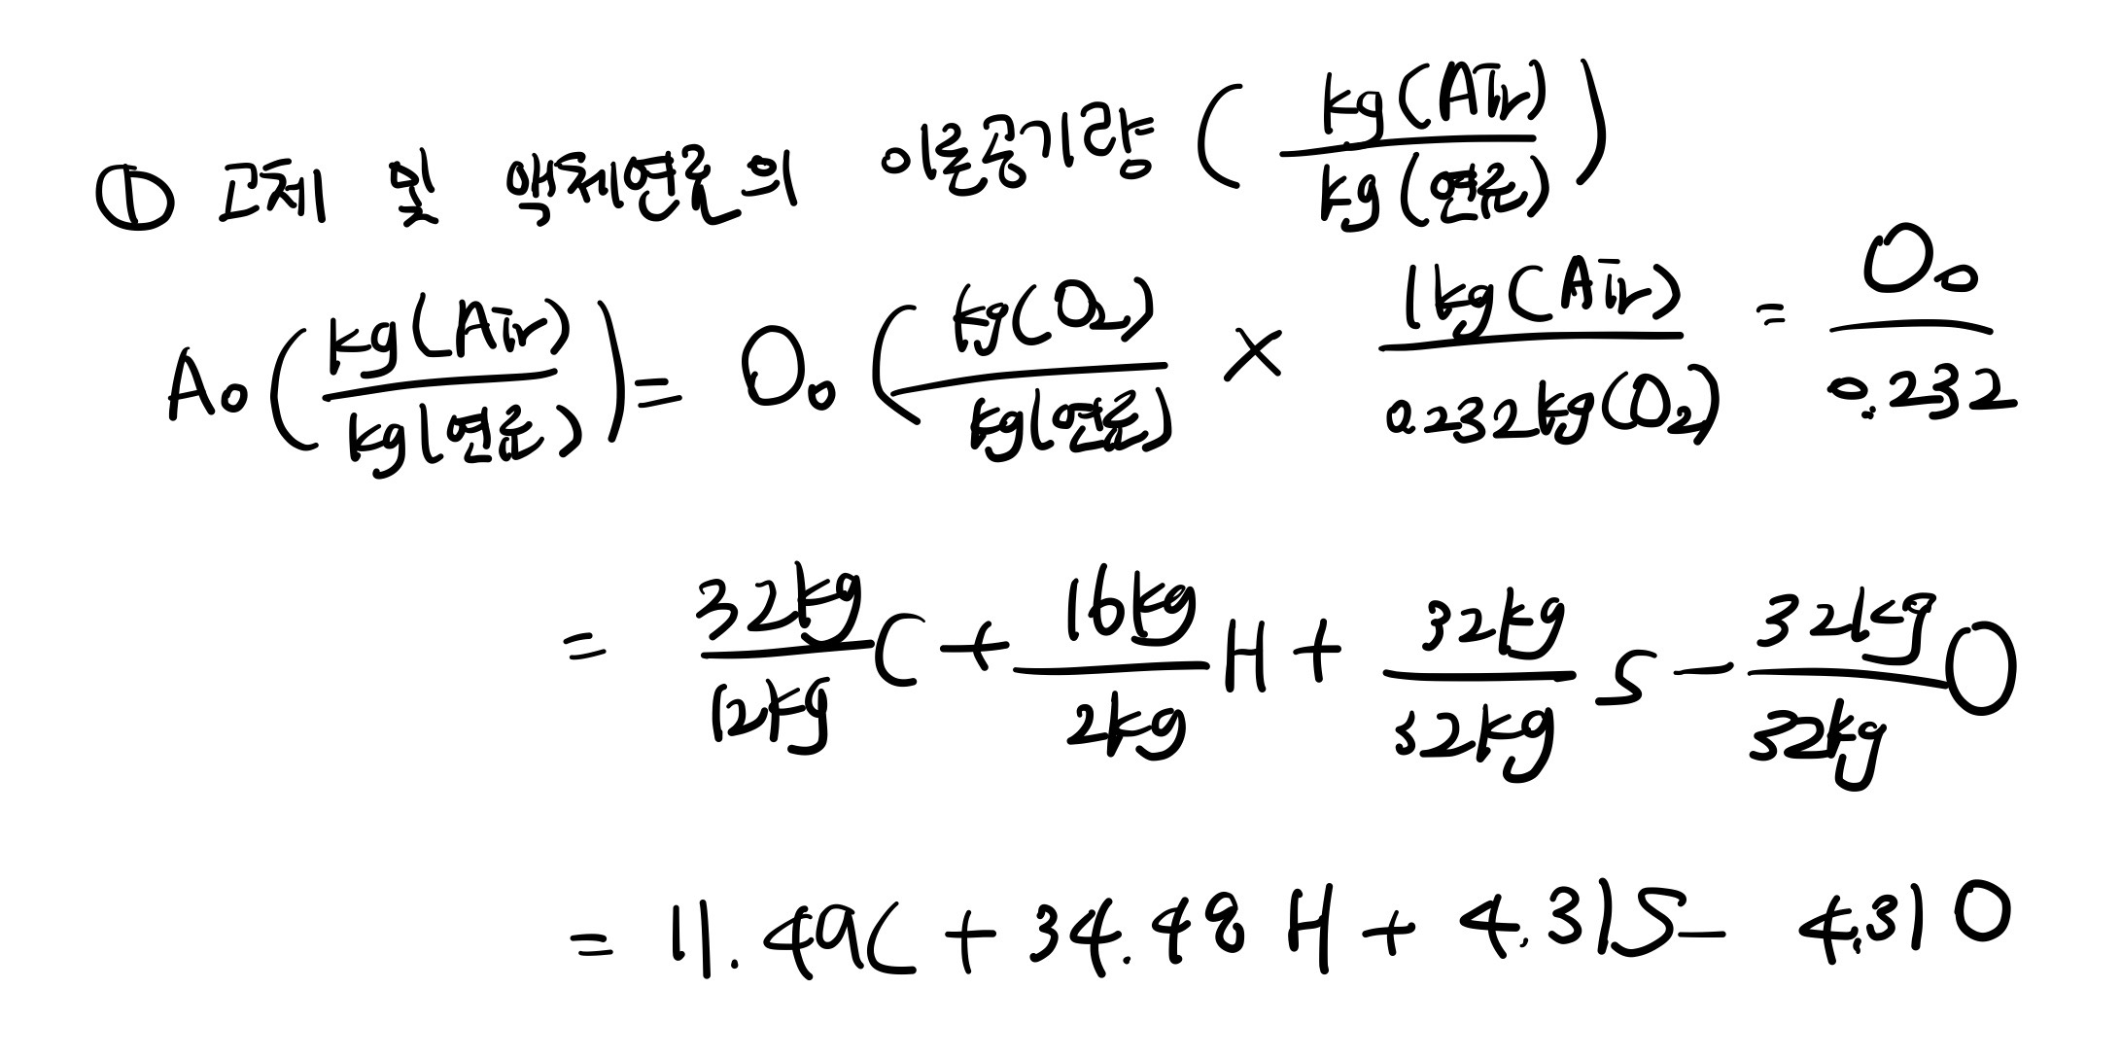 ① 고체 및 액체연료의 이론공기량 (kg(Air)/kg(연료))
A₀(kg(Air)/kg(연료)) = O₀(kg(O₂)/kg(연료)) × 1kg(Air)/0.232kg(O₂) = O₀/0.232
= 32kg/12kg C + 16kg/2kg H + 32kg/32kg S - 32kg/32kg O
= 11.49C + 34.48H + 4.31S - 4.31O